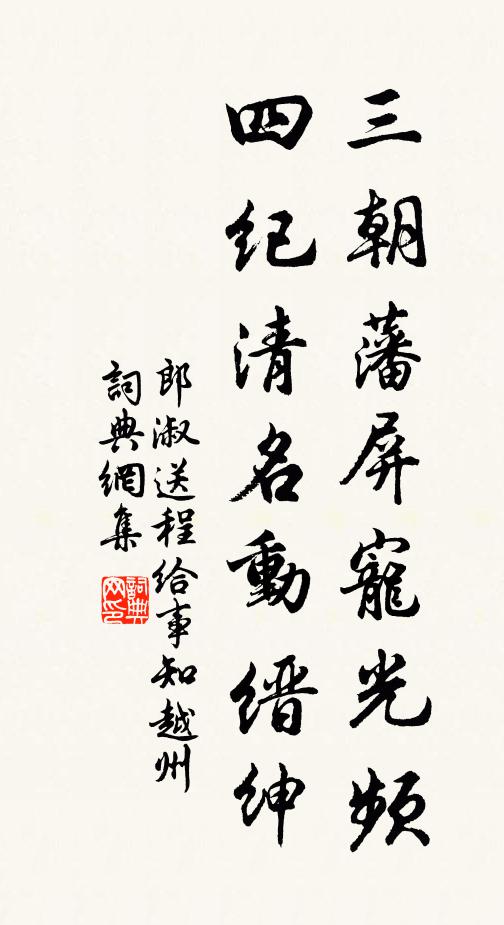 三朝藩屏寵光頻
四紀清名動縉紳
郎淑送程給事知越州
詞典網集
詞典网印